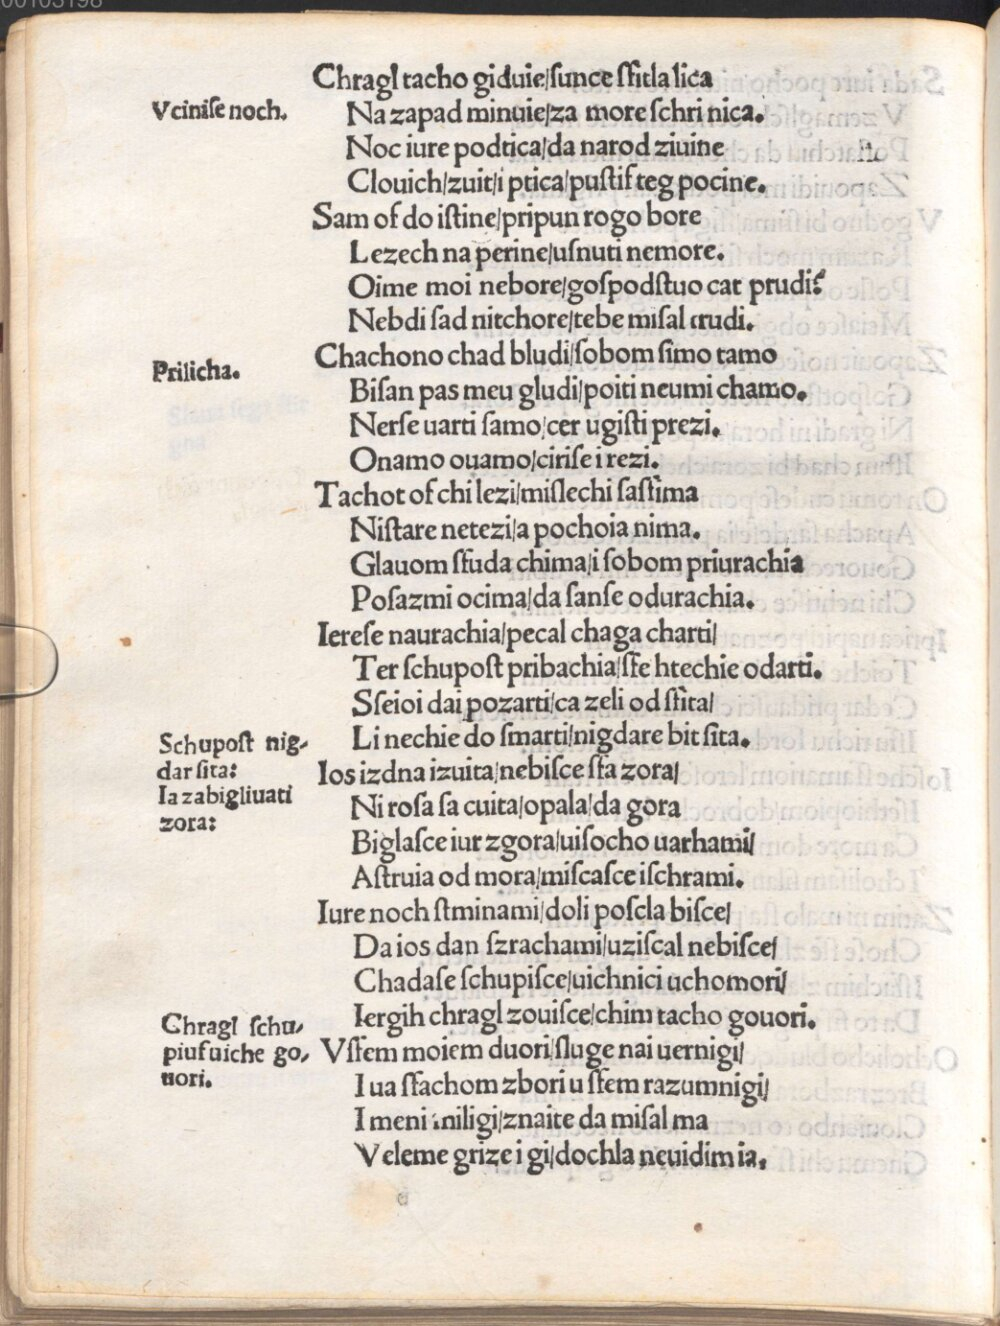 00103198
Chragl tacho giduie/ſunce ſſitla lica
Vciniſe noch.
Na zapad minuie/za more ſchri nica.
Noc iure podtica/da narod ziuine
Clouich/zuit/i ptica/puſtiſ teg pocine.
Sam of do iſtine/pripun rogo bore
Lezech na perine/uſnuti nemore.
Oime moi nebore/goſpodſtuo cat prudi?
Nebdi ſad nitchore/tebe miſal trudi.
Chachono chad bludi/ſobom ſimo tamo
Prilicha.
Biſan pas meu gludi/poiti neumi chamo.
Nerſe uarti ſamo/cer ugiſti prezi.
Onamo ouamo/ciriſe i rezi.
Tachot of chi lezi/miſlechi ſaſtima
Niſtare netezi/a pochoia nima.
Glauom ſſuda chima/i ſobom priurachia
Poſazmi ocima/da ſanſe odurachia.
Iereſe naurachia/pecal chaga charti/
Ter ſchupoſt pribachia/ſſe htechie odarti.
Sſeioi dai pozarti/ca zeli od ſſita/
Schupoſt nig-
dar ſita:
Ia zabigliuati
zora:
Li nechie do ſmarti/nigdare bit ſita.
Ios izdna izuita/nebiſce ſſa zora/
Ni roſa ſa cuita/opala/da gora
Biglaſce iur zgora/uiſocho uarhami/
Aſtruia od mora/miſcaſce iſchrami.
Iure noch ſtminami/doli poſcla biſce/
Da ios dan ſzrachami/uziſcal nebiſce/
Chadaſe ſchupiſce/uichnici uchomori/
Iergih chragl zouiſce/chim tacho gouori.
Chragl ſchu-
piuſuiche go-
uori.
Vſſem moiem duori/ſluge nai uernigi/
I ua ſſachom zbori u ſſem razumnigi/
I meni iniligi/znaite da miſal ma
Veleme grize i gi/dochla neuidim ia.